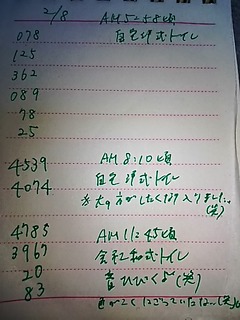 2/8 AM 5:58頃
078 自宅洋式トイレ
125
362
089
78
25
4539 AM 8:10頃
4074 自宅洋式トイレ
大の方がしたくて
(笑)
4785 AM 11:45頃
3967 会社和式トイレ
20 音ひびくよ(笑)
83